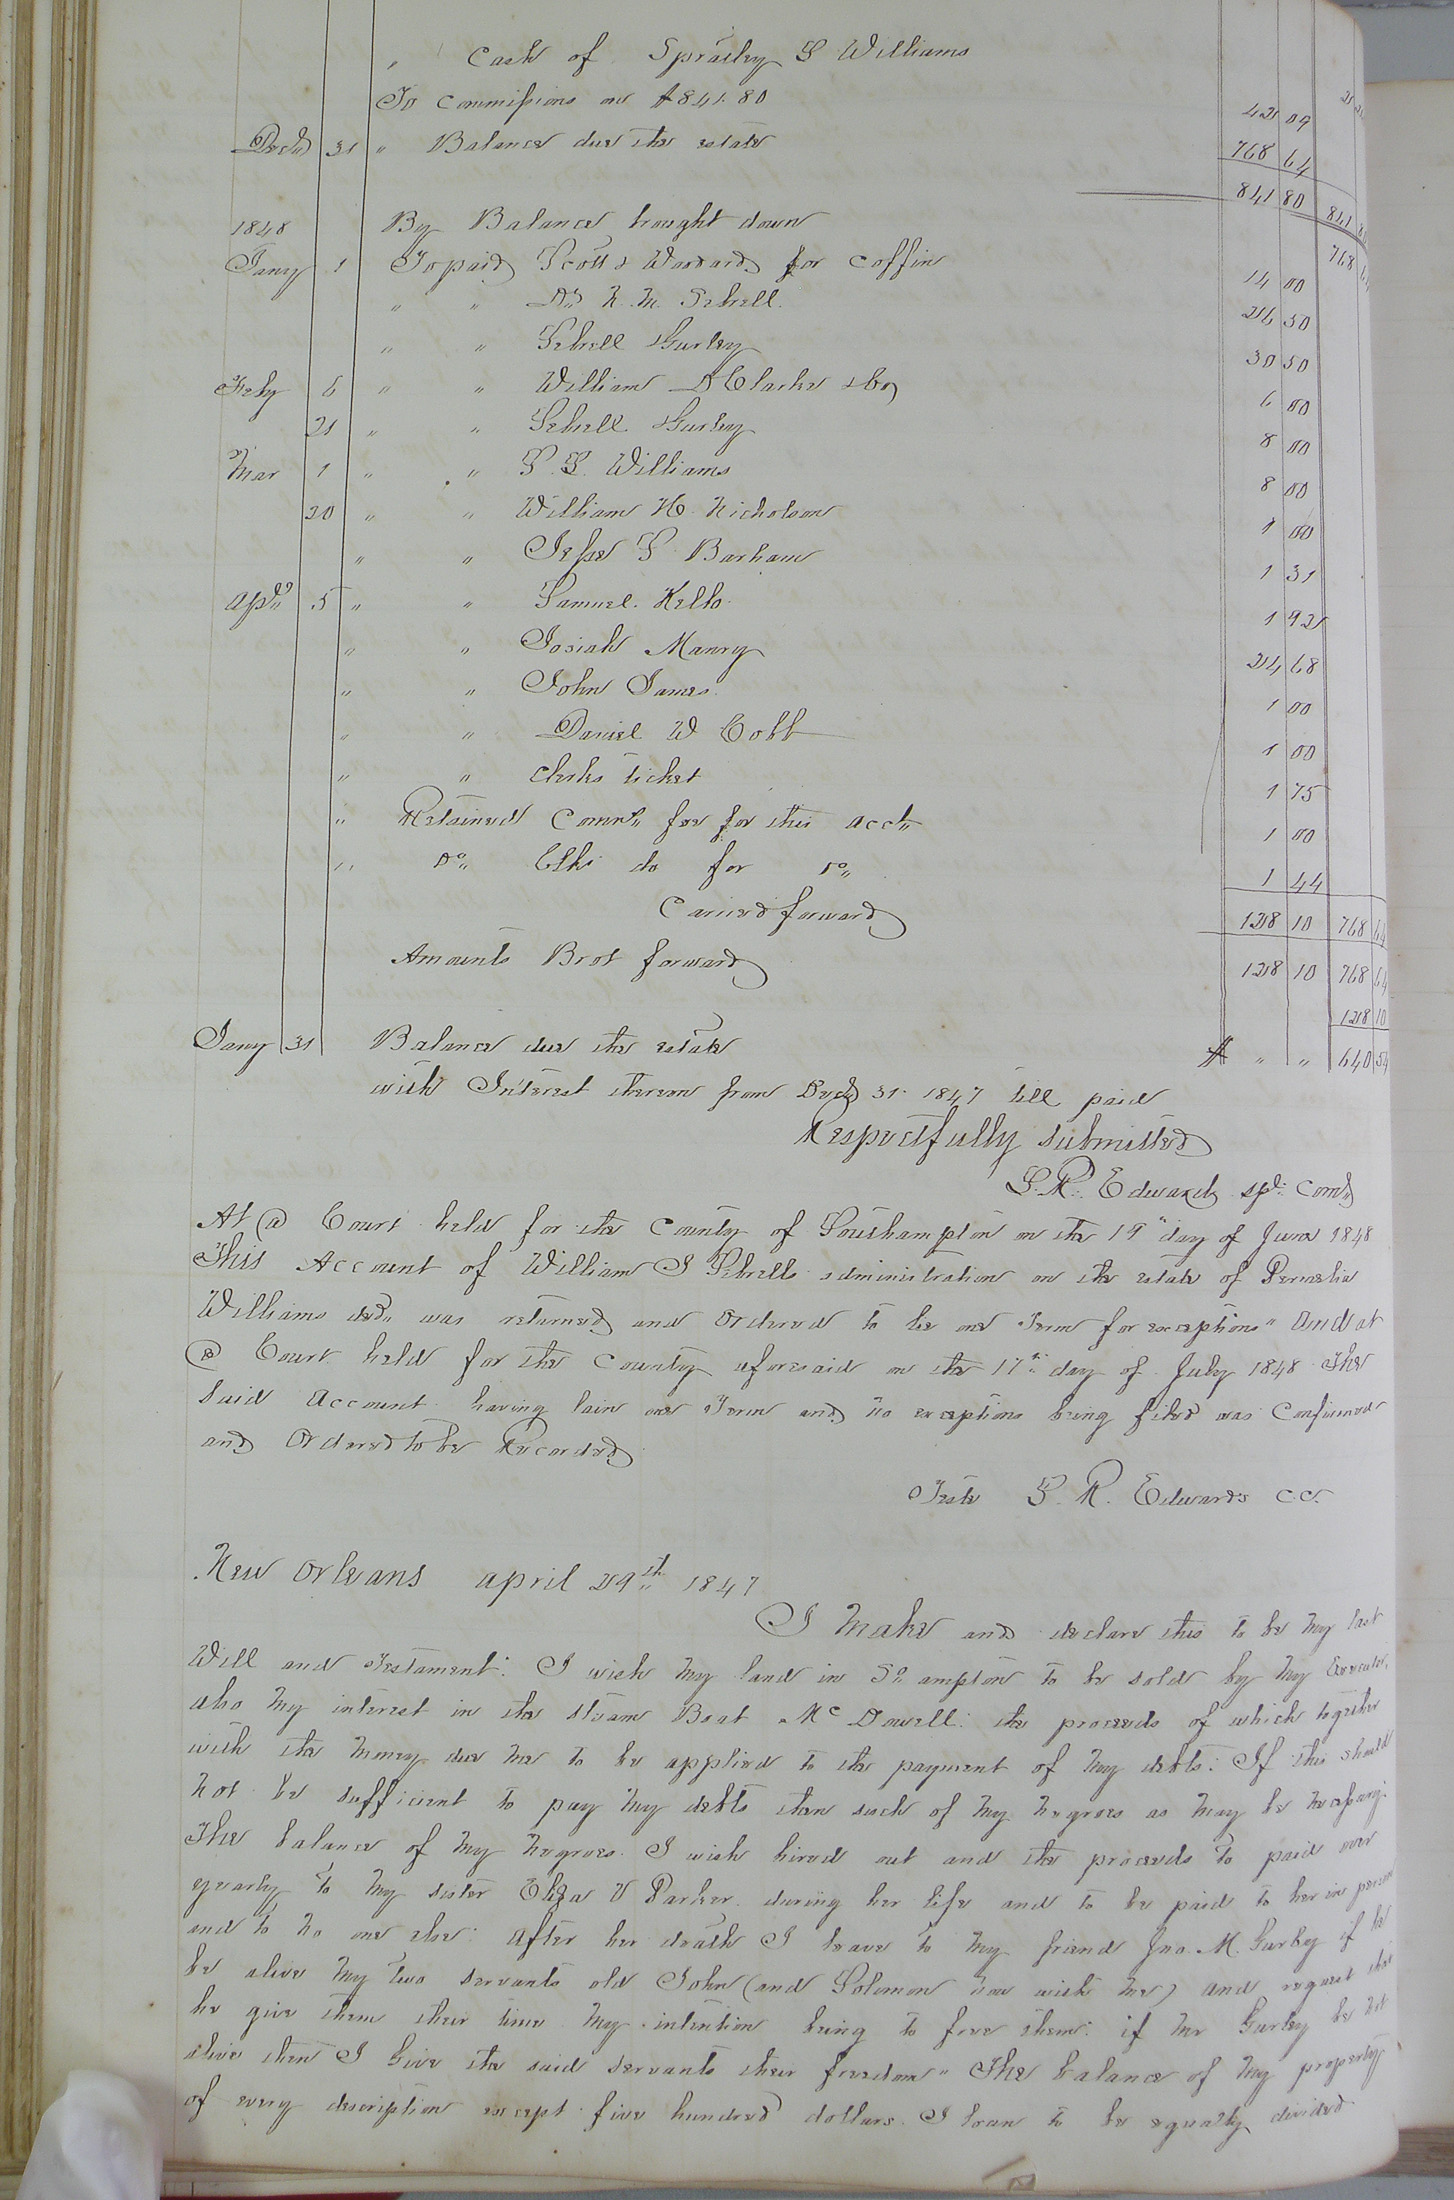 " Cash of Spratley S Williams
To Commissions on $841.80 42 09
Decr 31 " Balance due the estate 768 64
841 80 841
1848 By Balance brought down 768
Jany 1 To paid Scott & Woodard for Coffin 14 00
" " Dr. N. M. Sebrell 26 50
" " Sebrell & Gurley 30 50
Feby 6 " " William D Clarke & Co 6 00
21 " " Sebrell & Gurley 8 00
Mar 1 " " S. S. Williams 8 00
20 " " William H. Nicholson 1 00
" " Jesse S Barham 1 31
Apl. 5 " " Samuel Kello 1 92
" " Josiah Manry 24 68
" " John James 1 00
" " Daniel W Cobb 1 00
" " Clerks ticket 1 75
" Retained Comrs. fee for this acct. 1 00
" Do. Clks do for Do. 1 44
Carried forward 128 10 768 64
Amounts Brot forward 128 10 768 64
128 10
Jany 31 Balance due the estate $ " " 640 54
with Interest thereon from Decr 31. 1847 till paid
Respectfully submitted
S. R. Edwards spl. Comr.
At a Court held for the County of Southampton on the 19" day of June 1848
This Account of William J Sebrells administration on the estate of Permelia
Williams decd. was returned and Ordered to lie one Term for exceptions" And at
a Court held for the County aforesaid on the 17th day of July 1848 The
said Account having lain one Term and no exceptions being filed was Confirmed
and Ordered to be Recorded
Teste S. R. Edwards C.C.
New Orleans April 29th 1847
I Make and declare this to be my last
Will and Testament: I wish my land in So. ampton to be sold by my Executor,
also my interest in the steam Boat McDowell: the proceeds of which together
with the money due me to be applied to the payment of my debts: If this should
not be sufficient to pay my debts then such of my negroes as may be necessary:
The balance of my negroes I wish hired out and the proceeds to paid over
yearly to my sister Eliza V Parker during her life and to be paid to her in person
and to no one else: After her death I leave to my friend Jno. M. Gurley if he
be alive my two servants old John (and Solomon now with me) and request that
he give them their time my intention being to free them: if Mr Gurley be not
alive then I Give the said servants their freedom" The balance of my property
of every description except five hundred dollars I loan to be equally divided